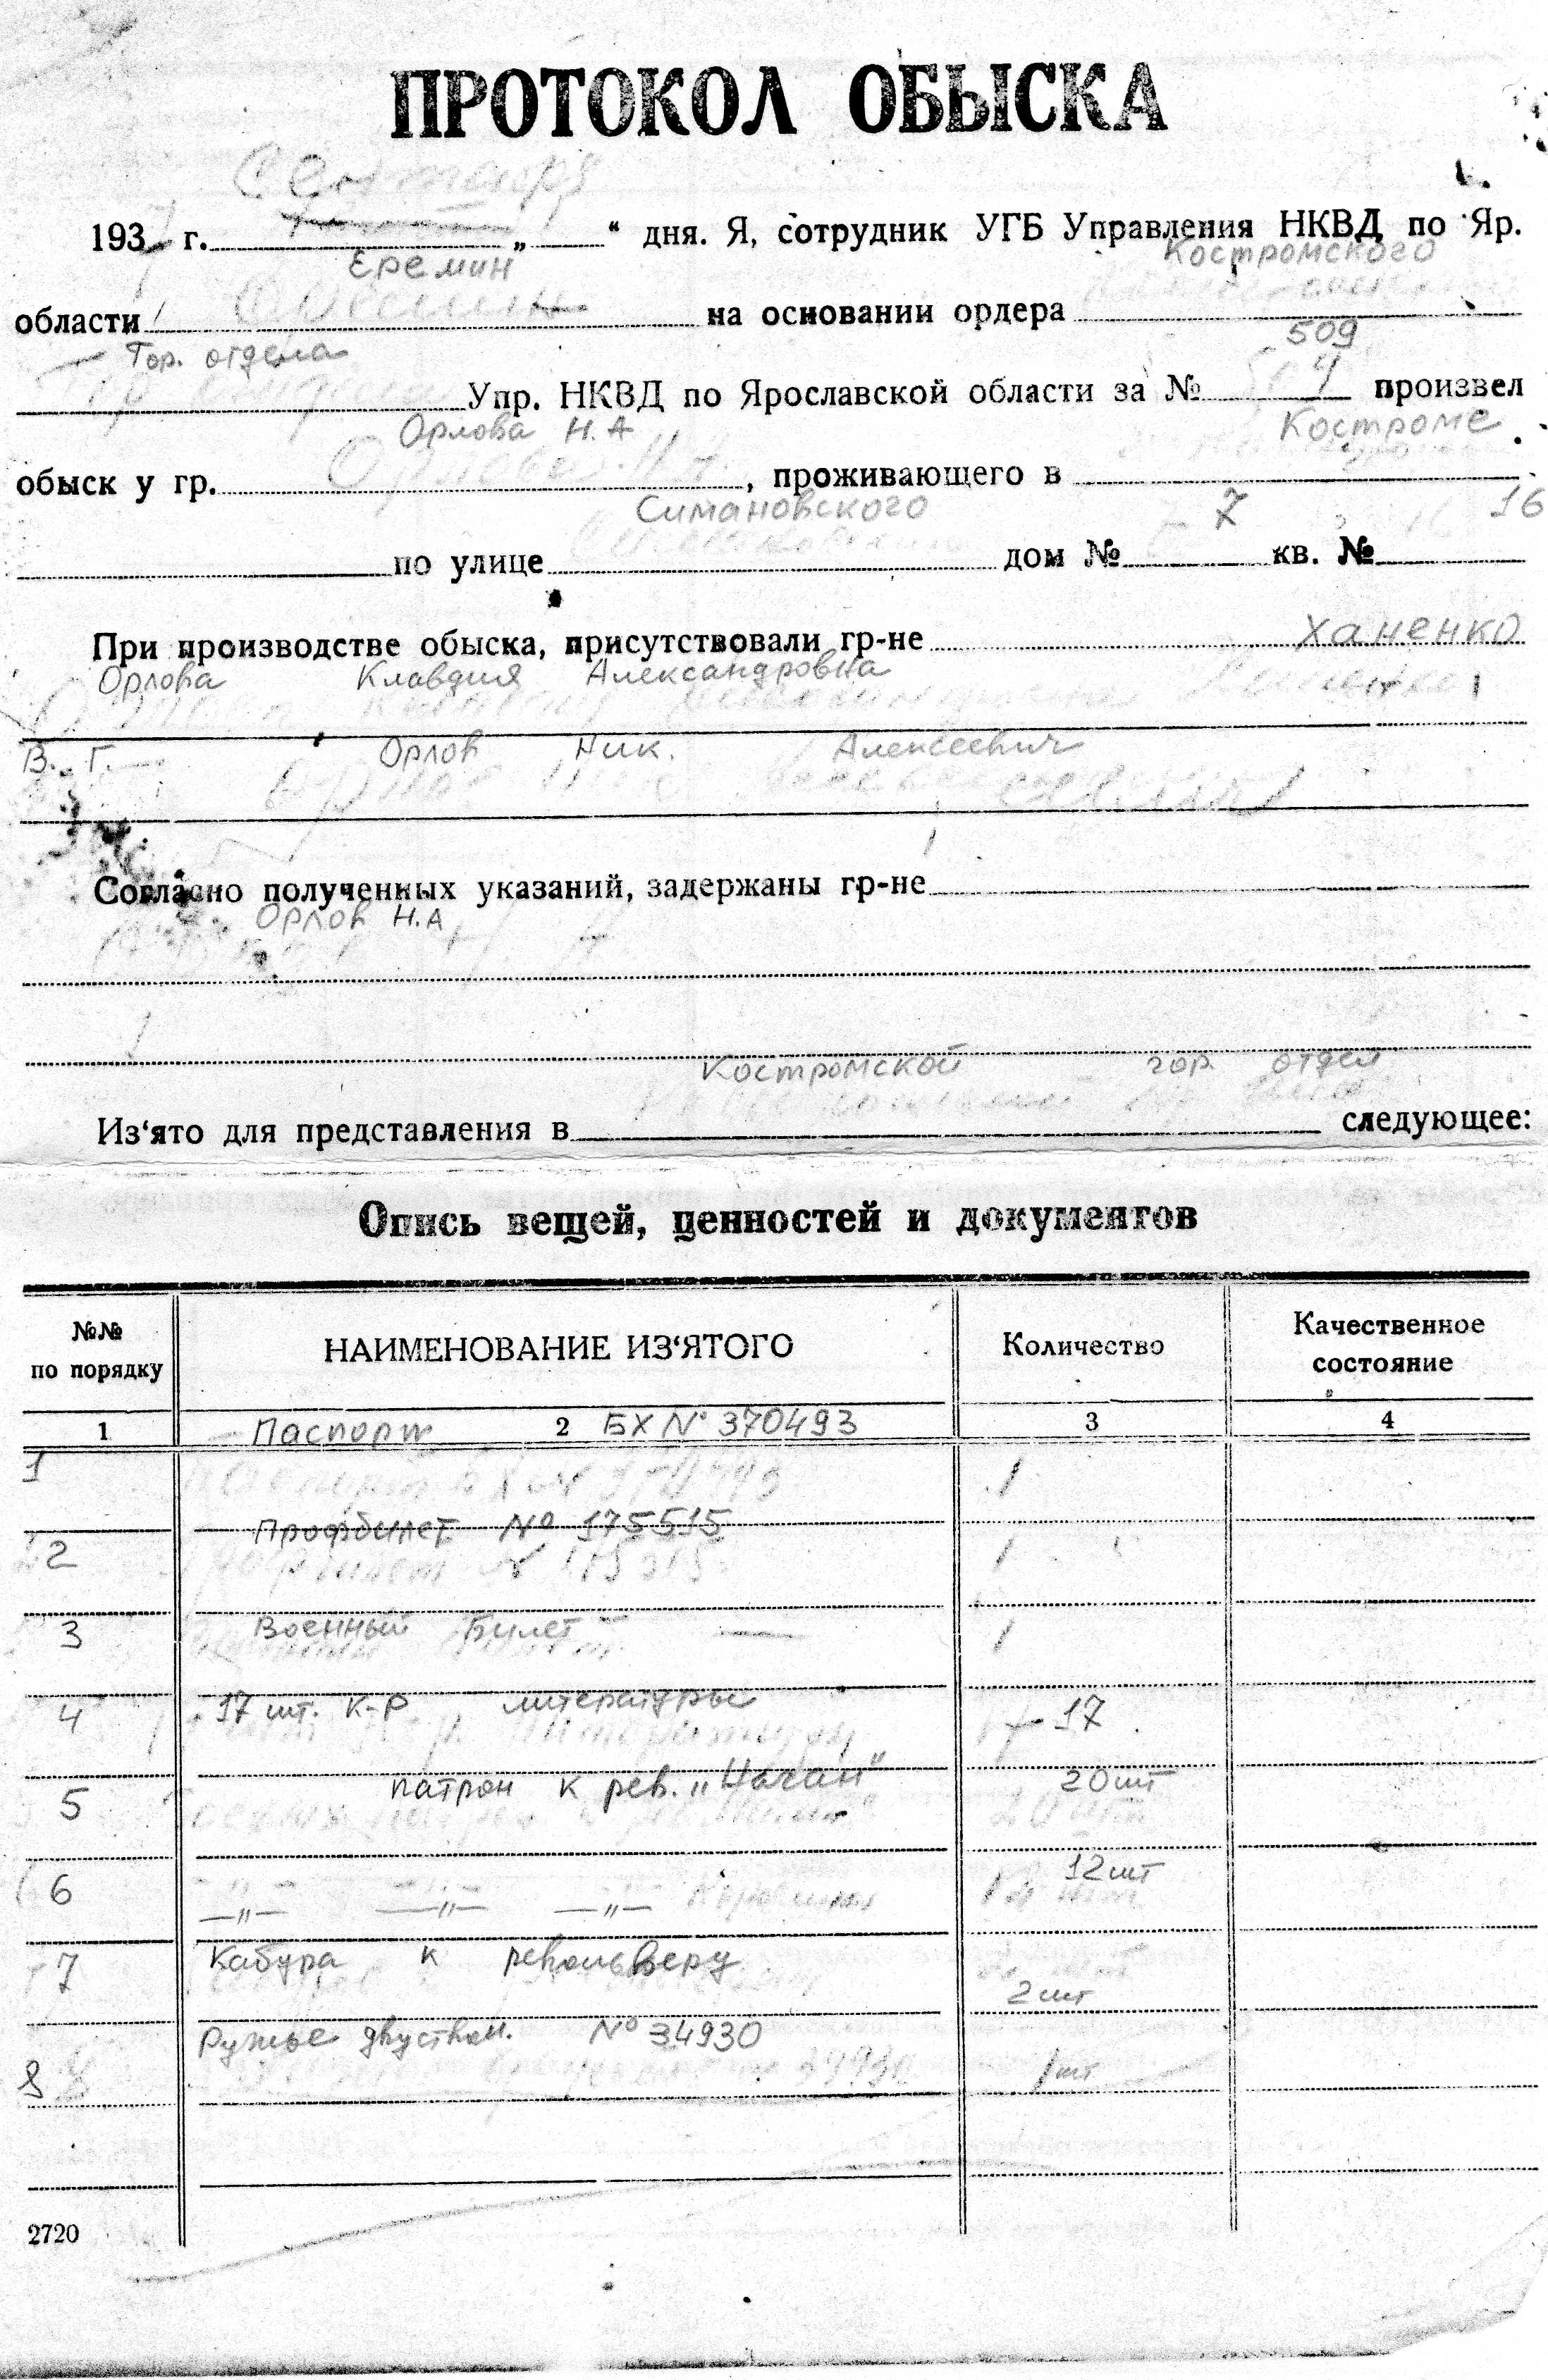 ПРОТОКОЛ ОБЫСКА
Сентября
1937 г. „ “ дня. Я, сотрудник УГБ Управления НКВД по Яр.
Еремин Костромского
области на основании ордера
Гор. отдела 509
Упр. НКВД по Ярославской области за № произвел
Орлова Н.А Костроме
обыск у гр. , проживающего в
Симановского 7 16
по улице дом № кв. №
При производстве обыска, присутствовали гр-не Ханенко
Орлова Клавдия Александровна
В. Г. Орлов Ник. Алексеевич
Согласно полученных указаний, задержаны гр-не
Орлов Н.А
Костромской гор. отдел
Из‘ято для представления в следующее:
Опись вещей, ценностей и документов
№№ по порядку НАИМЕНОВАНИЕ ИЗ‘ЯТОГО Количество Качественное состояние
1 2 3 4
1 Паспорт БХ № 370493 1
2 Профбилет № 175515 1
3 Военный Билет — 1
4 17 шт. К-Р литературы 17
5 патрон к рев. „Наган“ 20 шт
6 —„— —„— —„— 12 шт
7 Кабура к револьверу 2 шт
8 Ружье двуствол. № 34930 1 шт
2720